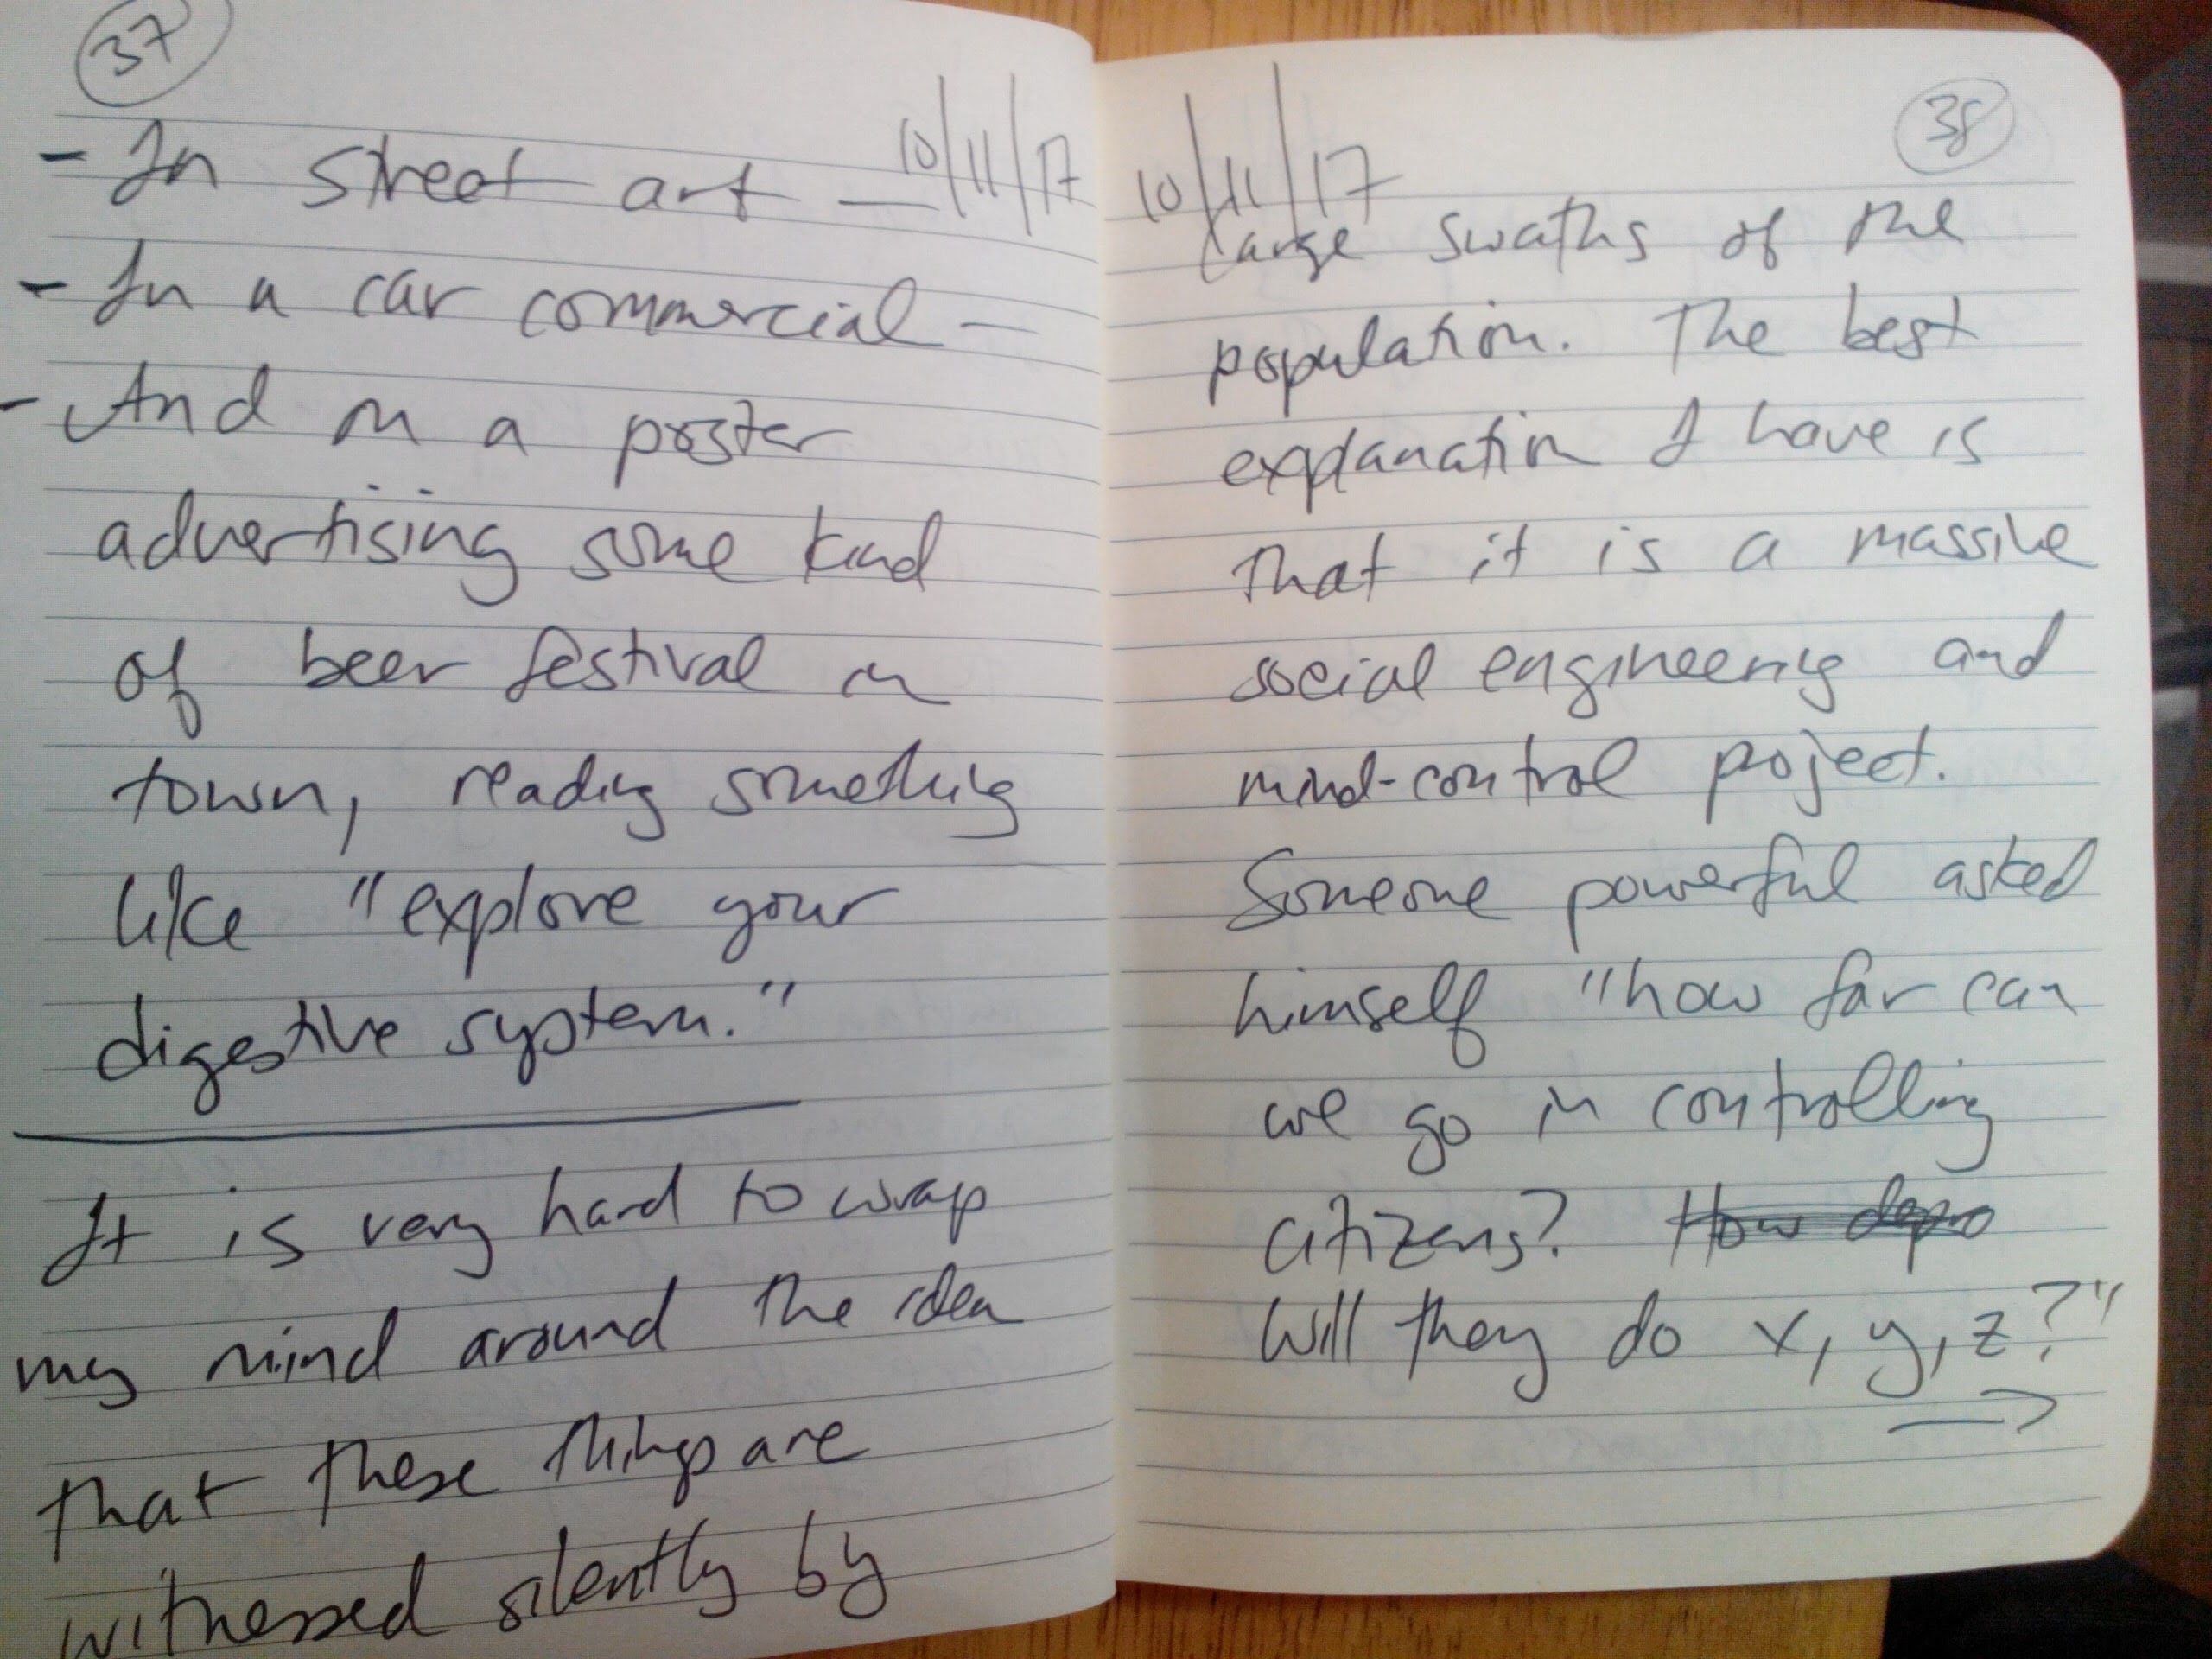 37
10/11/17
- In street art —
- In a car commercial —
- And on a poster
advertising some kind
of beer festival in
town, reading something
like "explore your
digestive system."
It is very hard to wrap
my mind around the idea
that these things are
witnessed silently by
38
10/11/17
large swaths of the
population. The best
explanation I have is
that it is a massive
social engineering and
mind-control poject.
Someone powerful asked
himself "how far can
we go in controlling
citizens? How depro
Will they do x, y, z?"
→